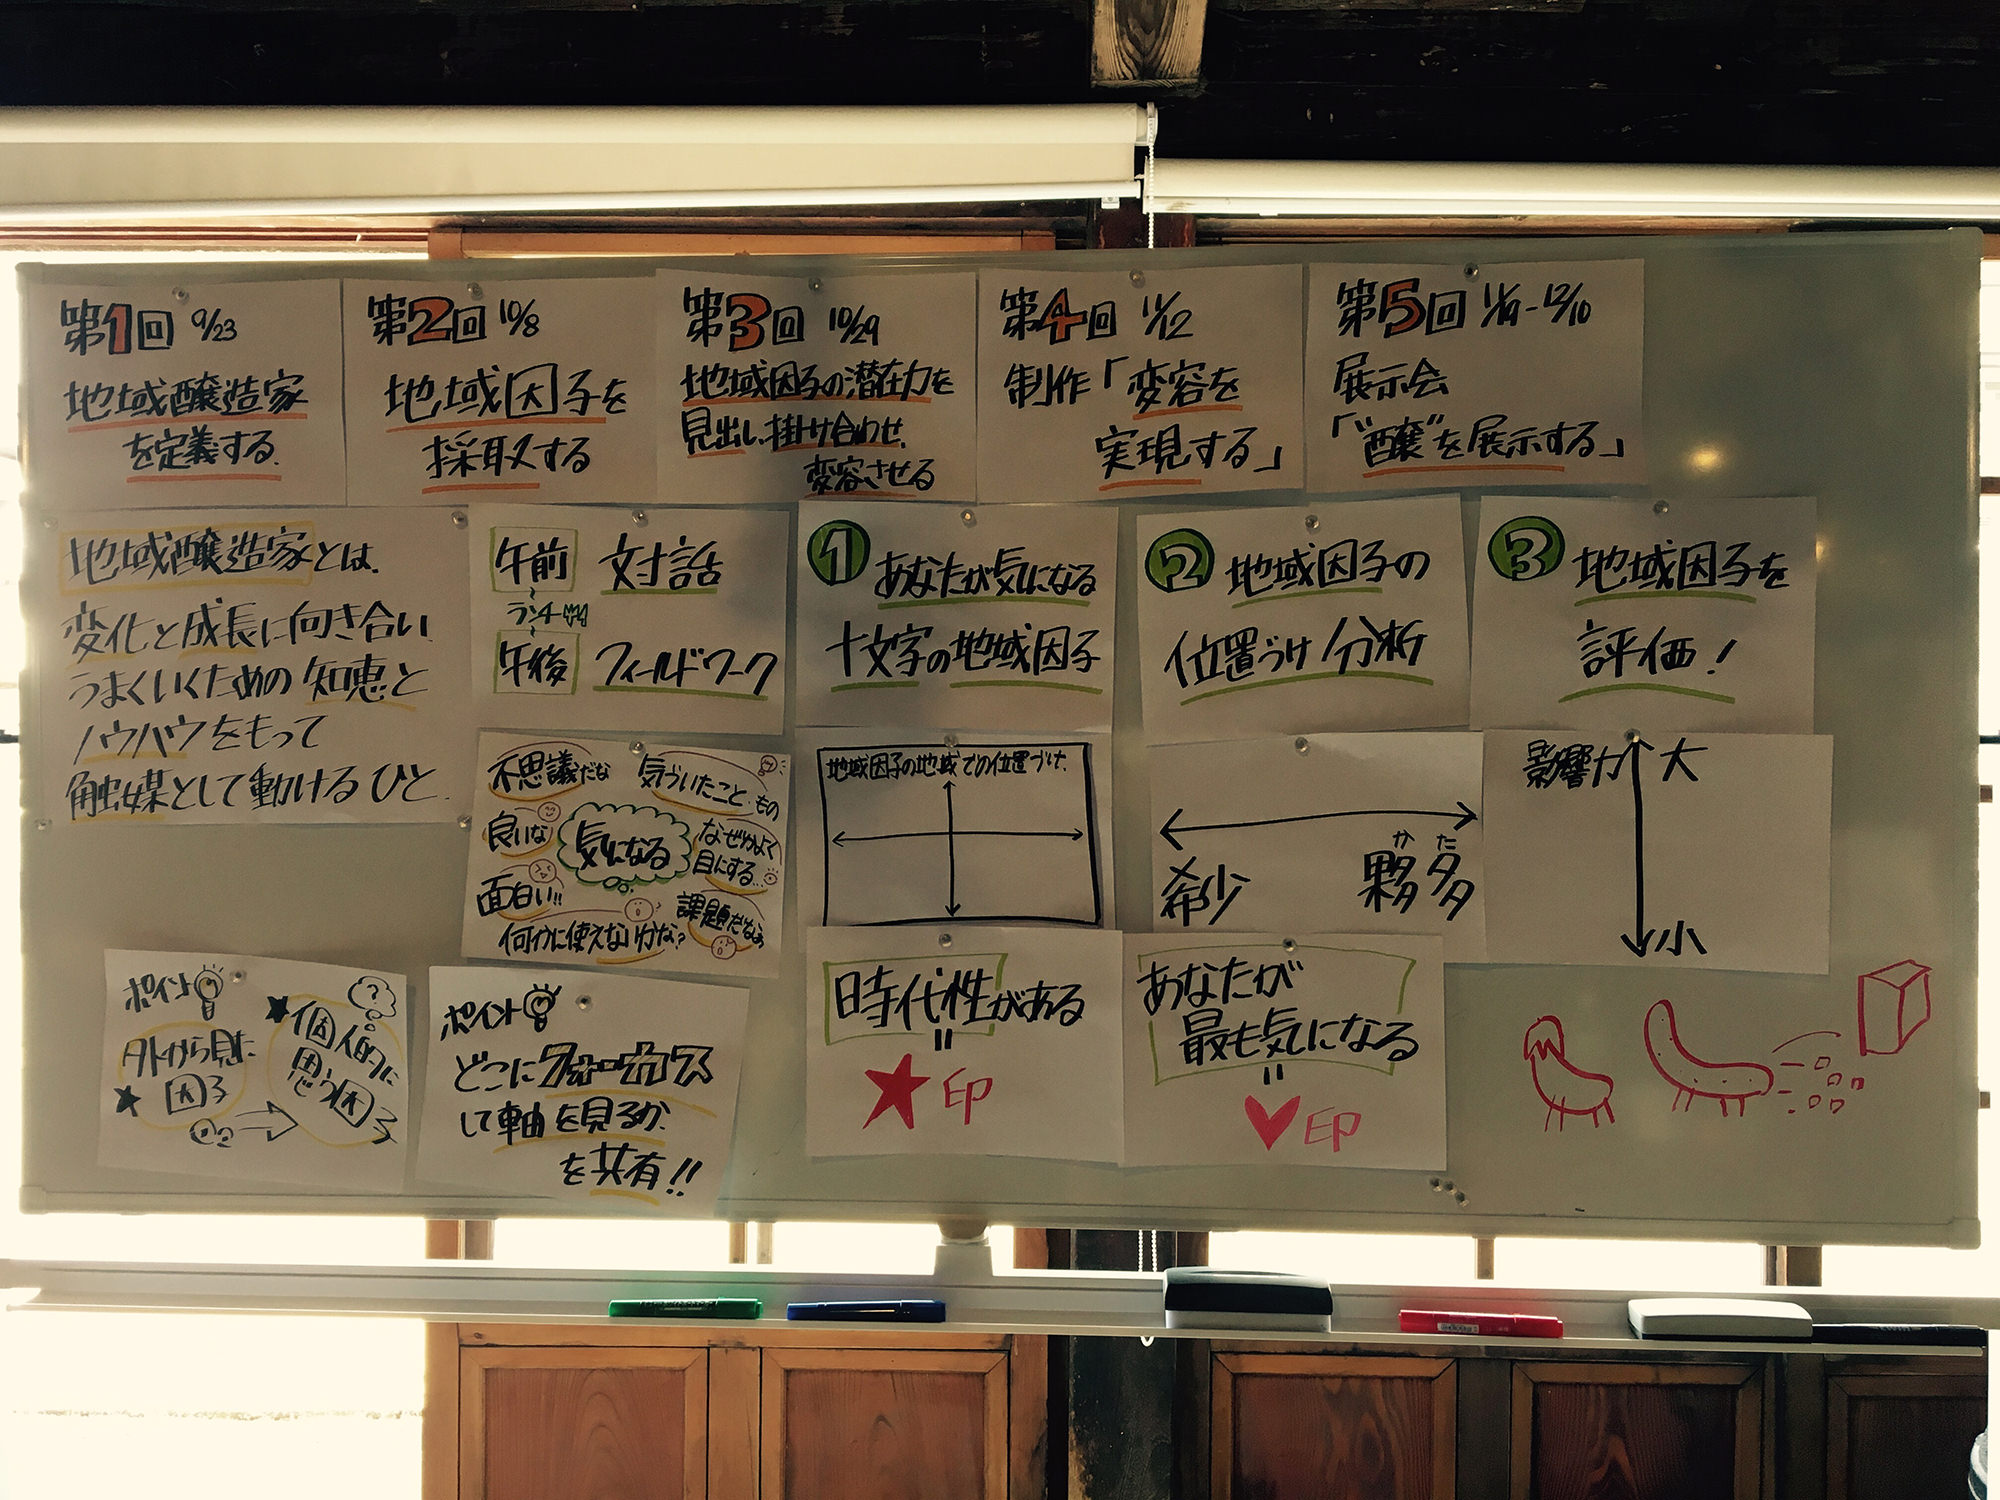 第1回 9/23
地域醸造家
を定義する.
第2回 10/8
地域因子を
採取する
第3回 10/29
地域因子の潜在力を
見出し、掛け合わせ、
変容させる
第4回 11/12
制作「変容を
実現する」
第5回 11/19-12/10
展示会
「“醸”を展示する」
地域醸造家とは、
変化と成長に向き合い
うまくいくための知恵と
ノウハウをもって
触媒として動けるひと.
午前 対話
ランチ
午後 フィールドワーク
① あなたが気になる
十文字の地域因子
② 地域因子の
位置づけ/分析
③ 地域因子を
評価!
不思議だな
気づいたこと・もの
良いな
気になる
なぜかよく
目にする...
面白い!!
何かに使えないかな?
課題だなぁ
地域因子の地域での位置づけ.
希少
夥多
かた
影響力 大
小
ポイント
外から見た
因子
個人的に
思う因子
?
ポイント
どこにフォーカス
して軸を見るか.
を共有!!
時代性がある
=
★印
あなたが
最も気になる
=
♥印